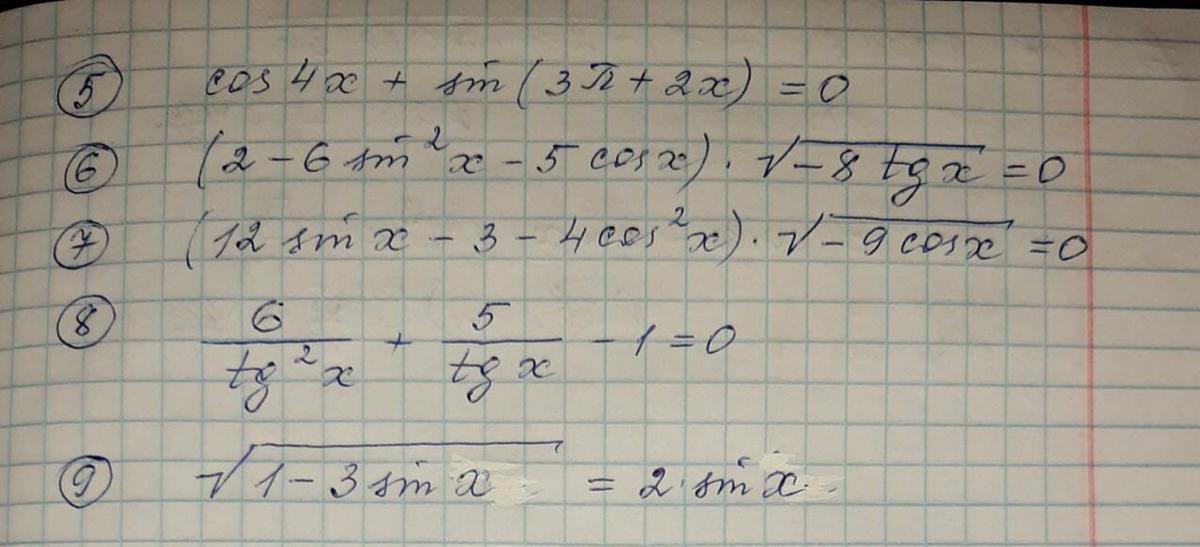 ⑤ cos 4x + sin (3π + 2x) = 0
⑥ (2 - 6 sin²x - 5 cos x) · √(-8 tg x) = 0
⑦ (12 sin x - 3 - 4 cos²x) · √(-9 cos x) = 0
⑧ 6/tg²x + 5/tg x - 1 = 0
⑨ √(1 - 3 sin x) = 2 · sin x